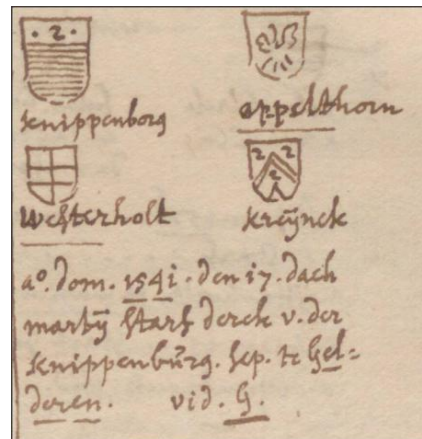 · 2 ·
knippenborg
appelthorn
2 2
2
Westerholt
kreÿnck
a°. dom. 1541. den 17. dach
martÿ starf derck v. der
knippenbürg. sep. te Gel=
deren. vid. G.